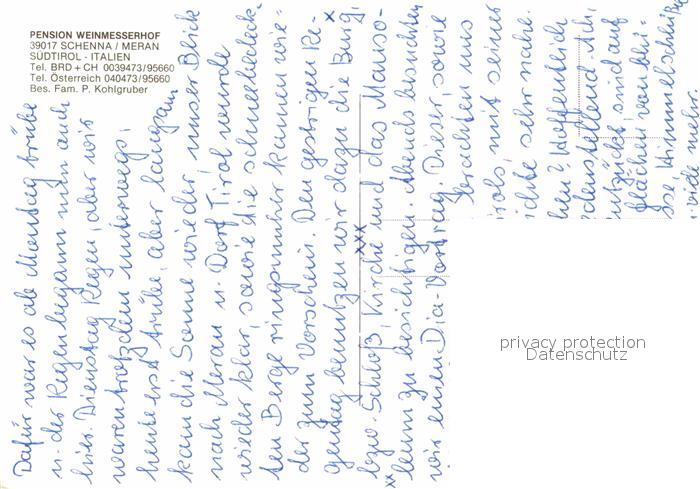 PENSION WEINMESSERHOF
39017 SCHENNA / MERAN
SÜDTIROL - ITALIEN
Tel. BRD + CH 0039473/95660
Tel. Österreich 040473/95660
Bes. Fam. P. Kohlgruber
Dafür war es ab Montag trübe
u. der Regen begann nun auch
hier. Dienstag Regen, aber wir
waren trotzdem unterwegs,
heute erst trübe, aber langsam
kam die Sonne wieder, unser Blick
nach Meran u. Dorf Tirol wurde
wieder klar, sowie die schneebedeck-
ten Berge ringsumher kamen wie-
der zum Vorschein. Den gestrigen Re-
gentag benutzten wir dazu die Burg,
bzw. Schloß, Kirche und das Mauso-
xxx
leum zu besichtigen. Abends besuchten
xx
wir einen Dia-Vortrag. Dieser, sowie
brachten uns
rols, mit seiner
ichte sehr nahe.
hen? Hoffentlich
denstellend.
sind auf
flächen von
Himmelschei
viele mehr.
privacy protection
Datenschutz